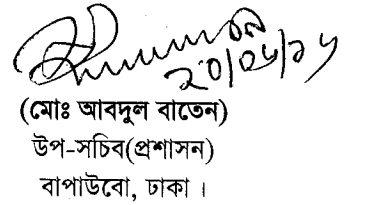 ২০/০৬/১৬
(মোঃ আবদুল বাতেন)
উপ-সচিব(প্রশাসন)
বাপাউবো, ঢাকা ।